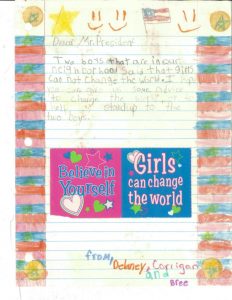 Dear Mr. President
Two boys that are in our
neighborhood said that girls
can not change the world. I
you can give us some advice
to change the
help us stand up to the
two boys.
Believe in
Yourself
Girls
can change
the world
from, Delaney, Corrigan
and
Bree